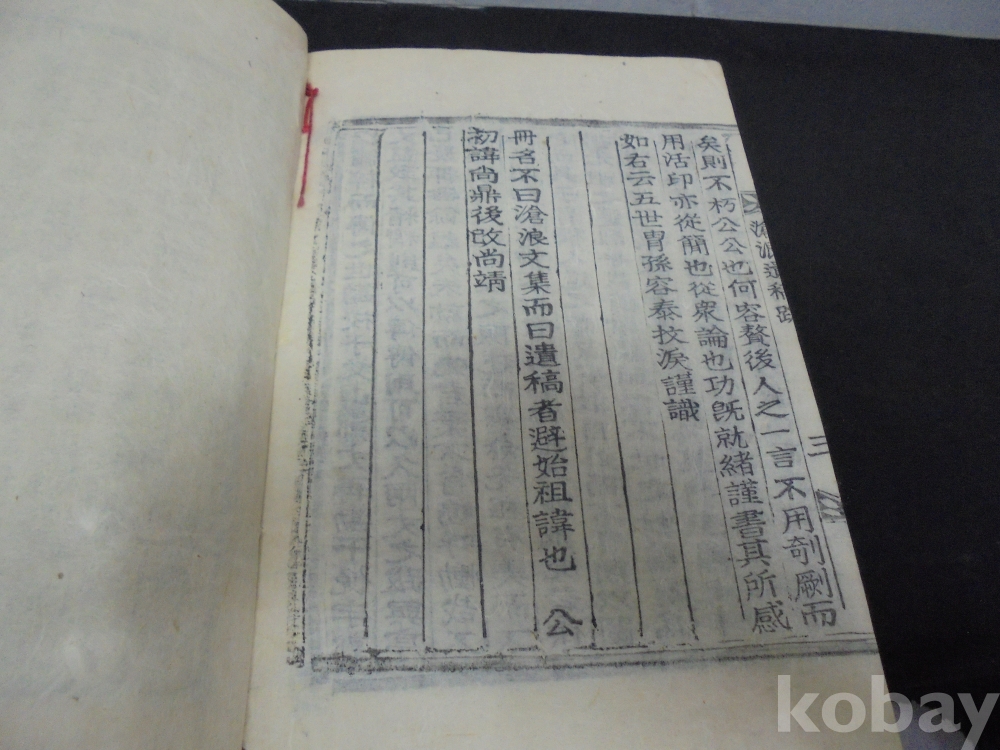 滄浪遺稿跋
三
矣則不朽公公也何容贅後人之一言不用剞劂而
用活印亦從簡也從衆論也功旣就緖謹書其所感
如右云五世胄孫容泰抆淚謹識
冊名不曰滄浪文集而曰遺稿者避始祖諱也 公
初諱尙鼎後改尙靖
kobay